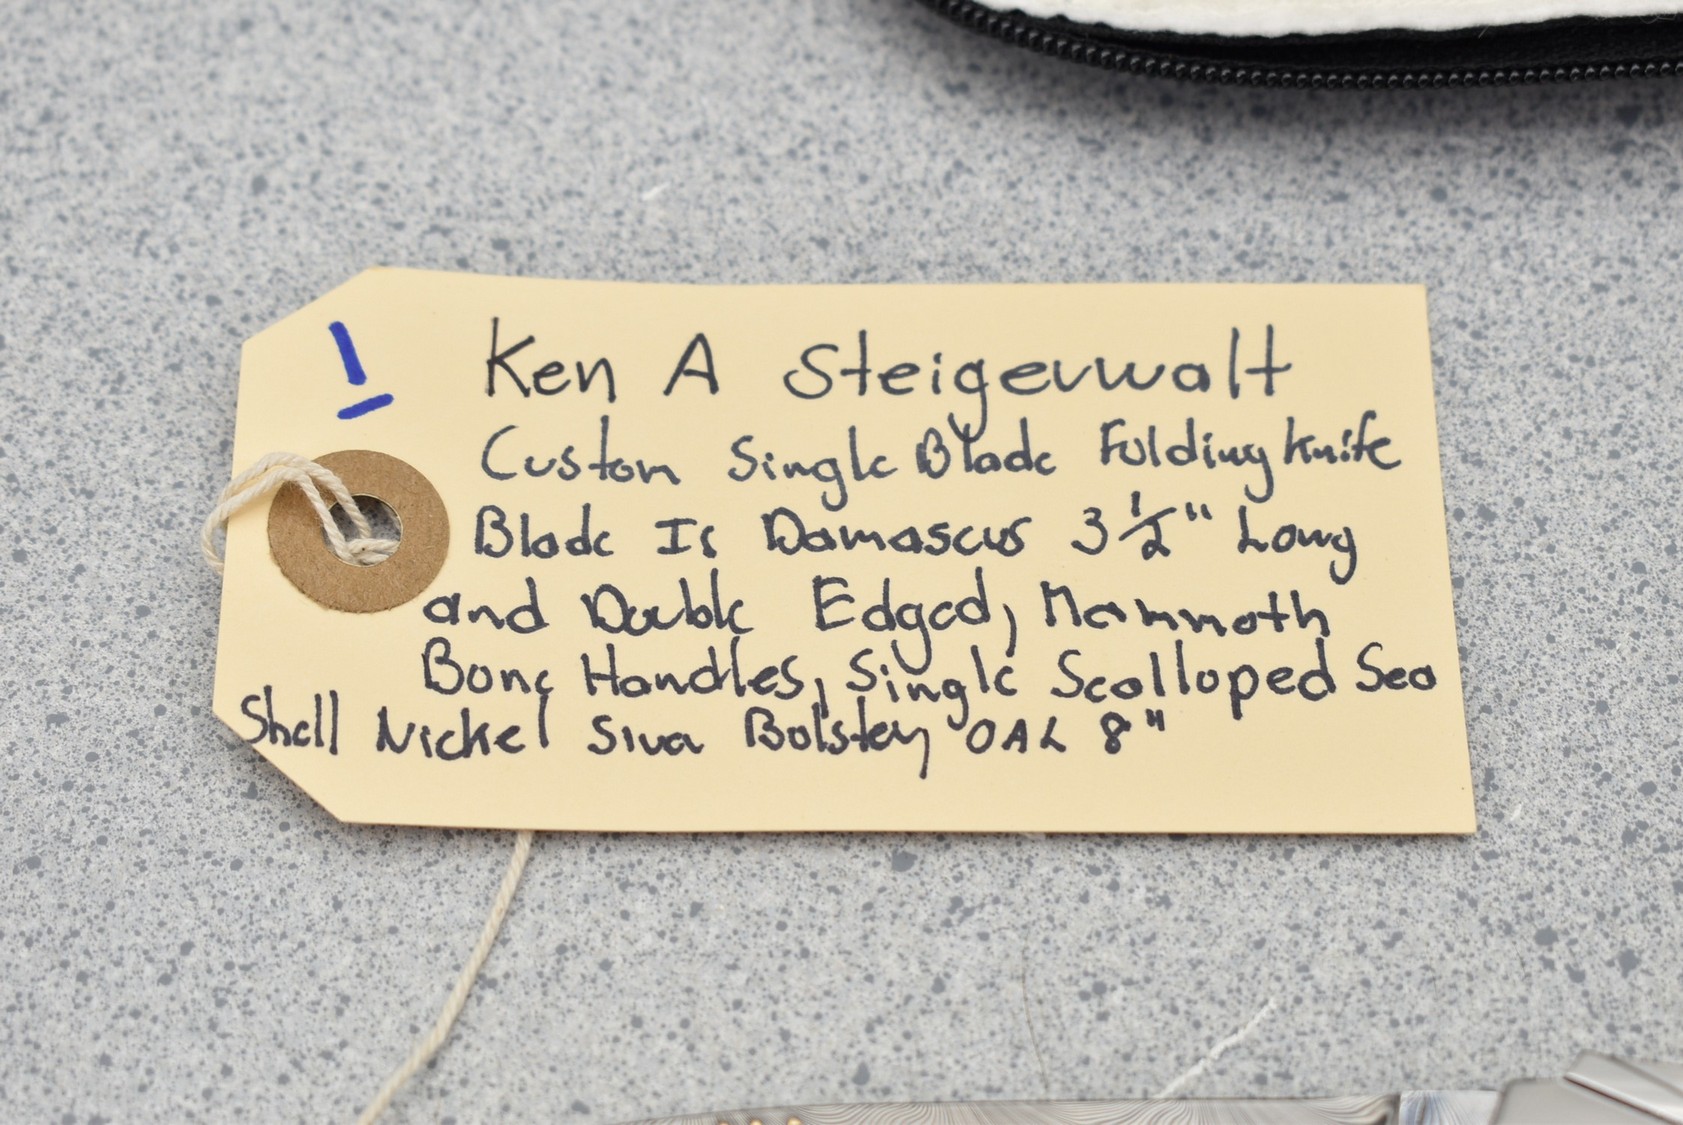 1
Ken A Steigerwalt
Custom Single Blade Folding Knife
Blade Is Damascus 3 1/2" Long
and Double Edged, Mammoth
Bone Handles, Single Scolloped Sea
Shell Nickel Silva Bolster, OAL 8"